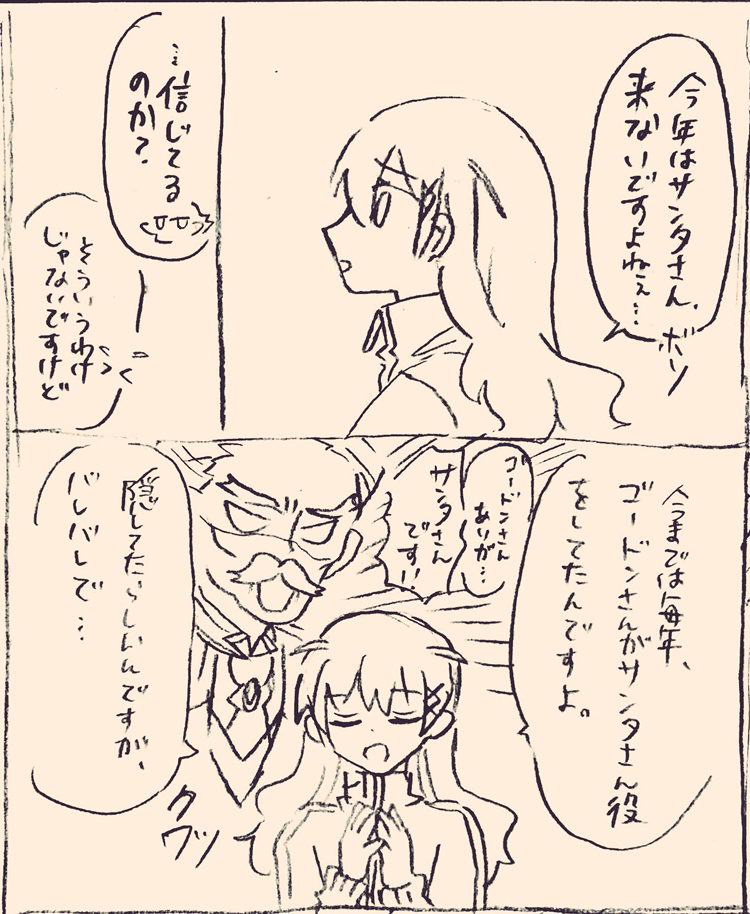 今年はサンタさん、
来ないですよねぇ…
ボソ
…信じてる
のか?
そういうわけ
じゃないですけど
今までは毎年、
ゴードンさんがサンタさん役
をしてたんですよ。
ゴードンさん
サンタさん
です!!
隠してたらしいんですが、
バレバレで…
クワッ